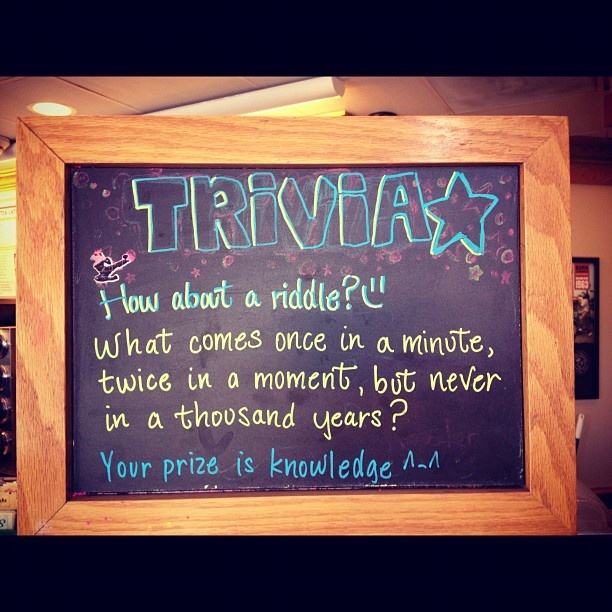 TRiViA
How about a riddle?
What comes once in a minute,
twice in a moment, but never
in a thousand years?
Your prize is knowledge ^-^